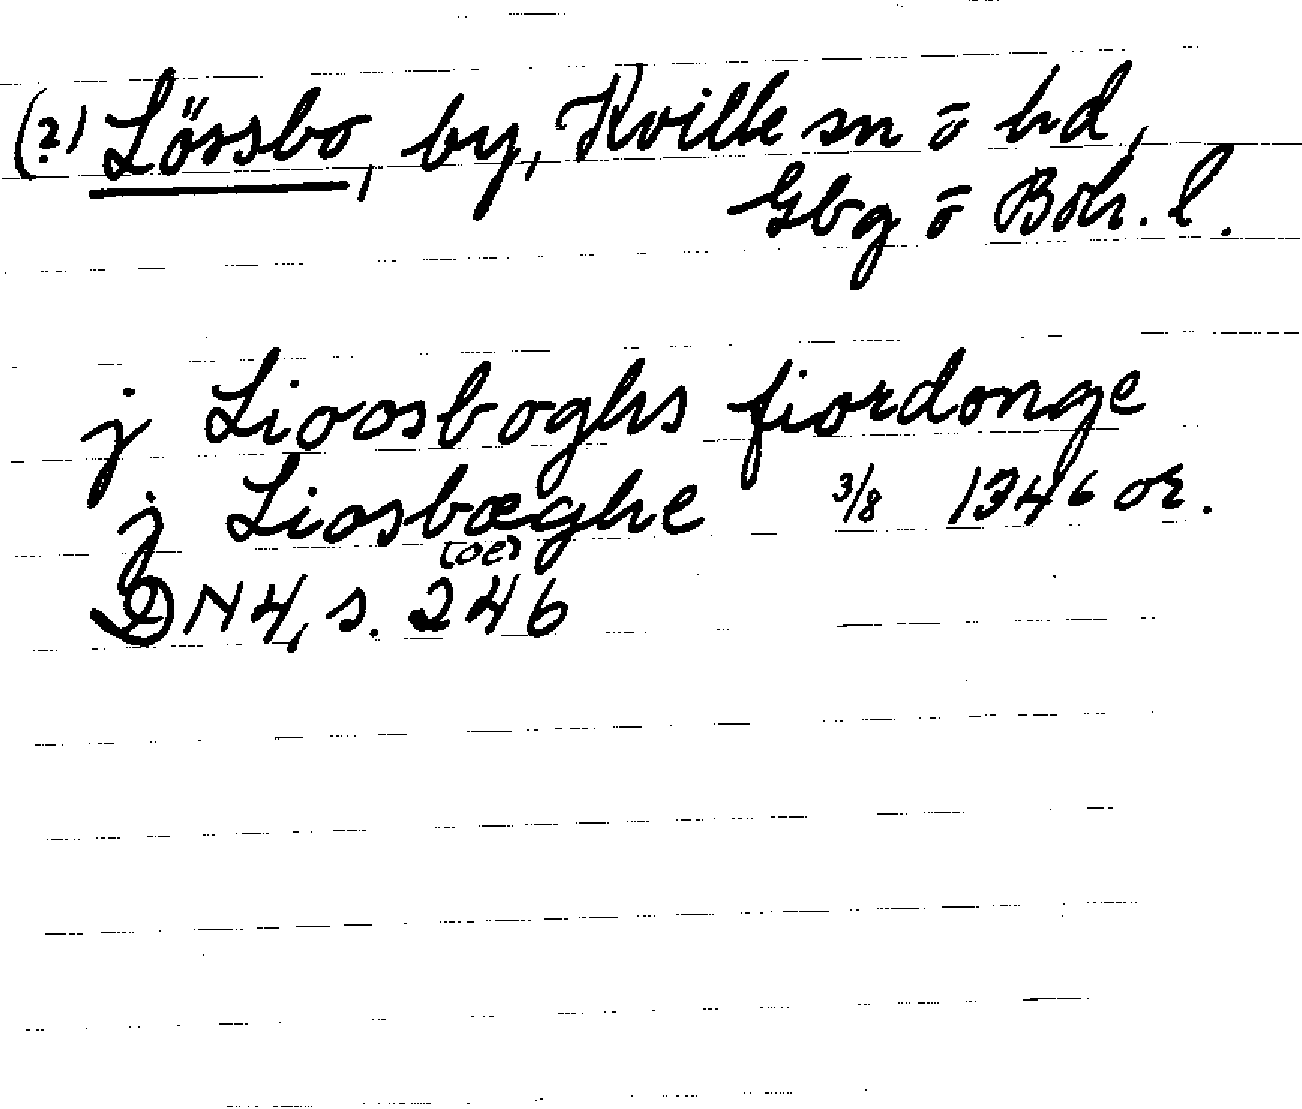 (?) Lössbo, by, Kville sn ō hd,
Gbg ō Boh. l.
j Lioosboghs fiordonge
j Liosbæghe 3/8 1346 or.
(oe)
DN 4, s. 246